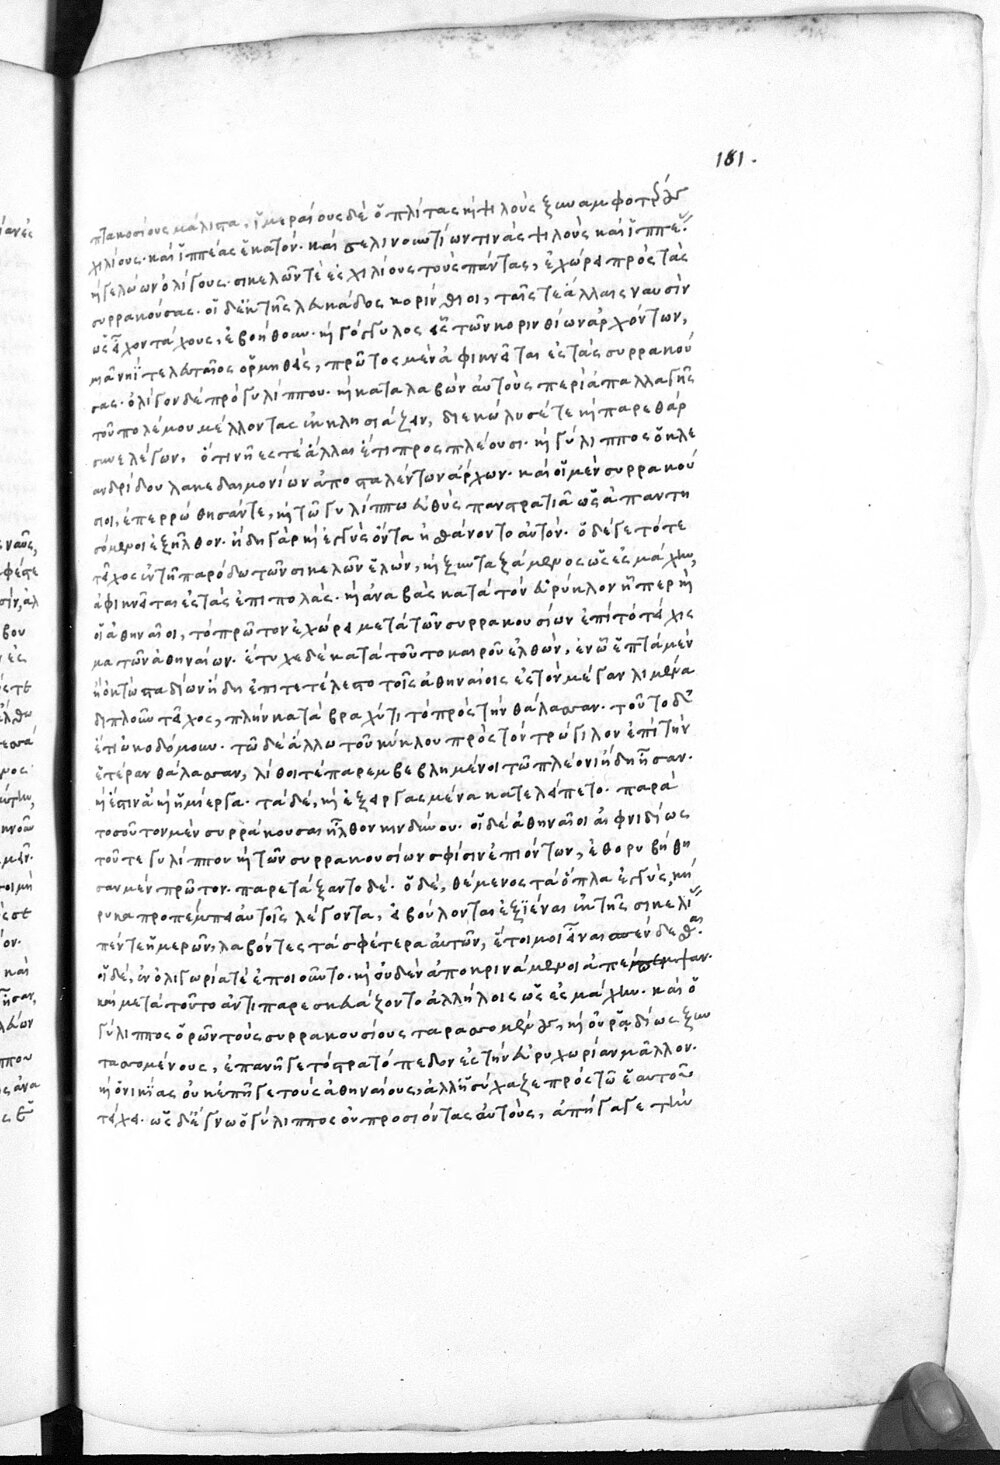 181.
πτακοσίους μάλιστα, ἱμεραίους δὲ ὁπλίτας καὶ ψιλοὺς ξυναμφοτέρους
χιλίους· καὶ ἱππέας ἑκατόν· καὶ σελινουντίων τινὰς ψιλοὺς καὶ ἱππέας
καὶ γελώων ὀλίγους· σικελῶν τὲ ἐς χιλίους τοὺς πάντας, ἐχώρει πρὸς τὰς
συρρακούσας· οἱ δ' ἐκ τῆς λευκάδος κορίνθιοι, ταῖς τε ἄλλαις ναυσὶν
ὡς εἶχον τάχους, ἐβοήθουν· καὶ γόγγυλος εἷς τῶν κορινθίων ἀρχόντων,
μιᾷ νηῒ τελευταῖος ὁρμηθεὶς, πρῶτος μὲν ἀφικνεῖται ἐς τὰς συρρακού
σας· ὀλίγον δὲ πρὸ γυλίππου· καὶ καταλαβὼν αὐτοὺς περὶ ἀπαλλαγῆς
τοῦ πολέμου μέλλοντας ἐκκλησιάζειν, διεκώλυσέ τε καὶ παρεθάρ
συνε λέγων, ὅτι νῆές τε ἄλλαι ἔτι προσπλέουσι· καὶ γύλιππος ὁ κλε
ανδρίδου λακεδαιμονίων ἀποστειλάντων ἄρχων· καὶ οἱ μὲν συρρακού
σιοι, ἐπερρώσθησάν τε, καὶ τῷ γυλίππῳ εὐθὺς πανστρατιᾷ ὡς ἀπαντη
σόμενοι ἐξῆλθον· ἤδη γὰρ καὶ ἐγγὺς ὄντα ᾐσθάνοντο αὐτόν· ὁ δὲ γε τότε
τεῖχος ἐν τῇ παρόδῳ τῶν σικελῶν ἑλὼν, καὶ ξυνταξάμενος ὡς ἐς μάχην,
ἀφικνεῖται ἐς τὰς ἐπιπολάς· καὶ ἀναβὰς κατὰ τὸν εὐρύηλον ᾗπερ καὶ
οἱ ἀθηναῖοι, τὸ πρῶτον ἐχώρει μετὰ τῶν συρρακουσίων ἐπὶ τὸ τείχις
μα τῶν ἀθηναίων· ἔτυχε δὲ κατὰ τοῦτο καιροῦ ἐλθὼν, ἐν ᾧ ἑπτὰ μὲν
ἢ ὀκτὼ σταδίων ἤδη ἐπετετέλεστο τοῖς ἀθηναίοις ἐς τὸν μέγαν λιμένα
διπλοῦν τεῖχος, πλὴν κατὰ βραχύ τι τὸ πρὸς τὴν θάλασσαν· τοῦτο δ'
ἔτι ᾠκοδόμουν· τῷ δὲ ἄλλῳ τοῦ κύκλου πρὸς τὸν τρώγιλον ἐπὶ τὴν
ἑτέραν θάλασσαν, λίθοι τὲ παρεμβεβλημένοι τῷ πλέονι ἤδη ἦσαν·
καὶ ἔστιν ἃ καὶ ἡμίεργα· τὰ δὲ, καὶ ἐξειργασμένα κατελείπετο· παρὰ
τοσοῦτον μὲν συρράκουσαι ἦλθον κινδύνου· οἱ δὲ ἀθηναῖοι αἰφνιδίως
τοῦ τε γυλίππου καὶ τῶν συρρακουσίων σφίσιν ἐπιόντων, ἐθορυβήθη
σαν μὲν πρῶτον· παρετάξαντο δέ· ὁ δὲ, θέμενος τὰ ὅπλα ἐγγὺς, κή
ρυκα προπέμπει αὐτοῖς λέγοντα, εἰ βούλονται ἐξιέναι ἐκ τῆς σικελί
πέντε ἡμερῶν, λαβόντες τὰ σφέτερα αὐτῶν, ἑτοῖμοι εἶναι σπένδεσθαι.
οἱ δὲ, ἐν ὀλιγωρίᾳ τὲ ἐποιοῦντο· καὶ οὐδὲν ἀποκρινάμενοι ἀπέπεμψαν·
καὶ μετὰ τοῦτο ἀντιπαρεσκευάζοντο ἀλλήλοις ὡς ἐς μάχην· καὶ ὁ
γύλιππος ὁρῶν τοὺς συρρακουσίους ταρασσομένους, καὶ οὐ ῥᾳδίως ξυν
τασσομένους, ἐπανῆγε τὸ στρατόπεδον ἐς τὴν εὐρυχωρίαν μᾶλλον·
καὶ ὁ νικίας οὐκ ἐπῆγε τοὺς ἀθηναίους, ἀλλ' ἡσύχαζε πρὸς τῷ ἑαυτῶν
τείχει· ὡς δ' ἔγνω ὁ γύλιππος οὐ προσιόντας αὐτοὺς, ἀπήγαγε τὴν